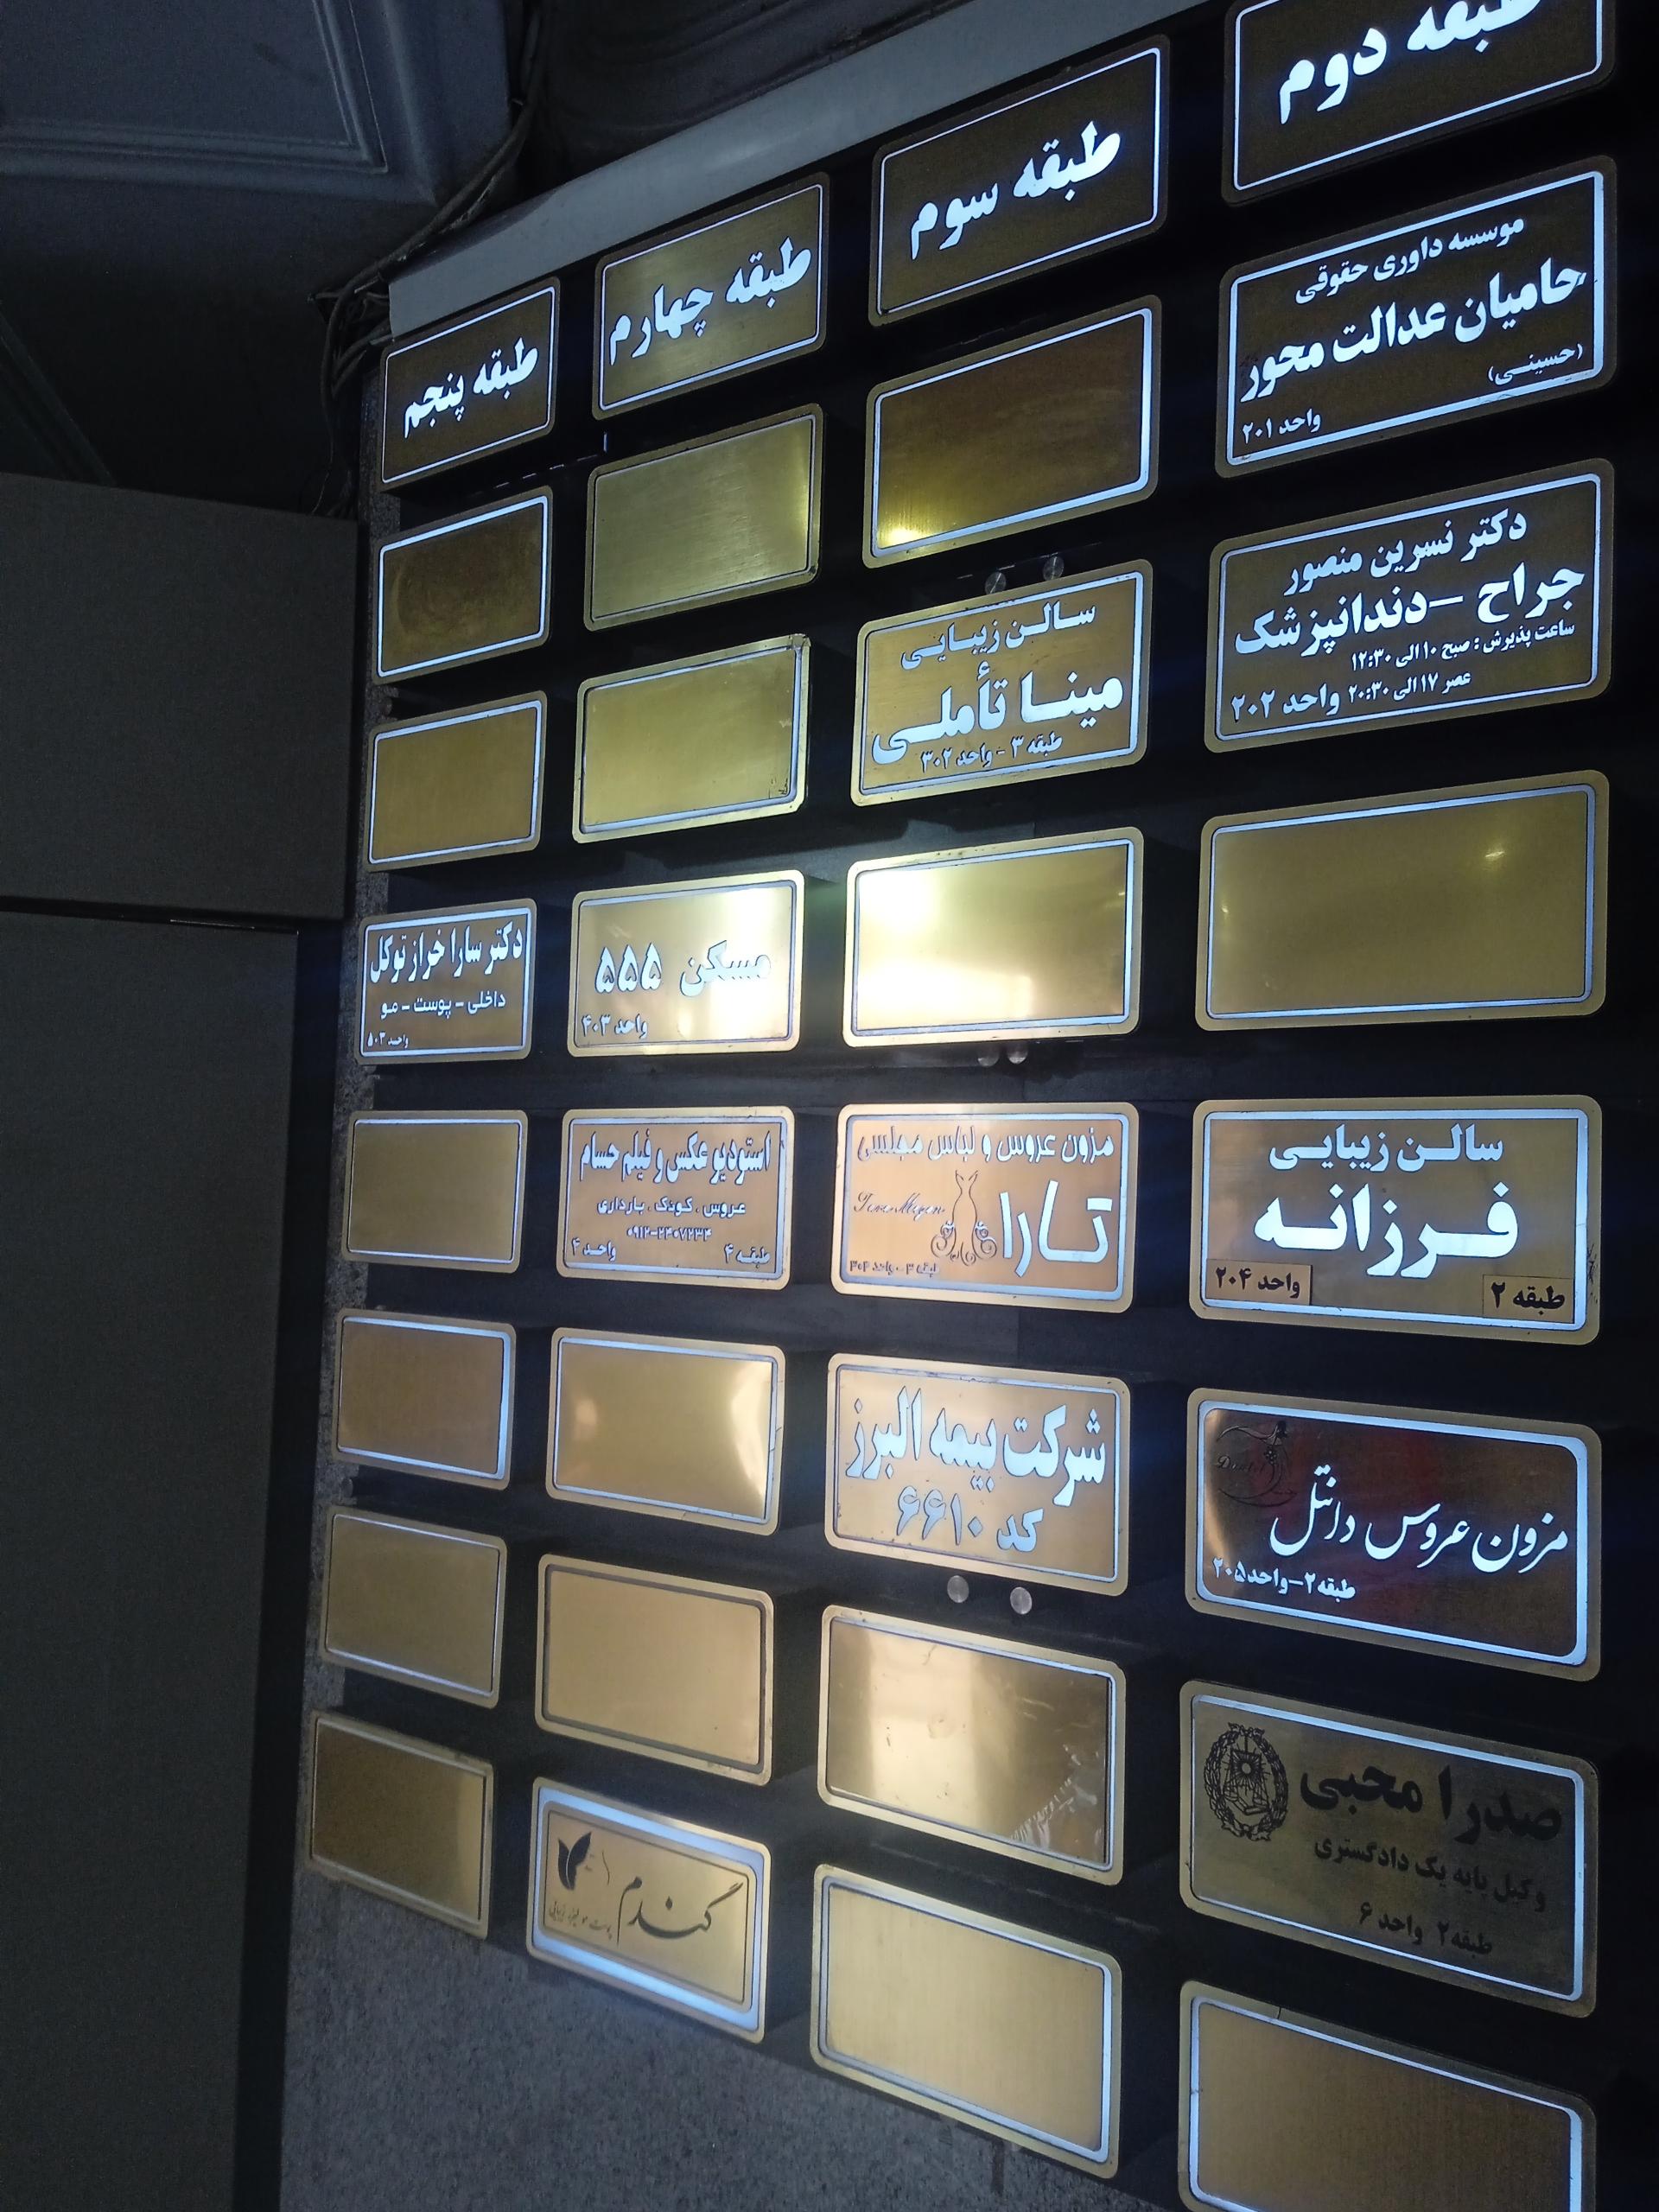 طبقه دوم
موسسه داوری حقوقی
حامیان عدالت محور
(حسینی)
واحد ۲۰۱
دکتر نسرین منصور
جراح - دندانپزشک
ساعت پذیرش : صبح ۱۰ الی ۱۲:۳۰
عصر ۱۷ الی ۲۰:۳۰ واحد ۲۰۲
سالن زیبایی
فرزانه
طبقه ۲ واحد ۲۰۴
مزون عروس دانتل
طبقه ۲-واحد ۲۰۵
صدرا محبی
وکیل پایه یک دادگستری
طبقه ۲ واحد ۶
طبقه سوم
سالن زیبایی
مینا تأملی
طبقه ۳ - واحد ۳۰۲
مزون عروس و لباس مجلسی
تارا
Tara Mezon
طبقه ۳ - واحد
شرکت بیمه البرز
کد ۶۶۱۰
طبقه چهارم
مسکن ۵۵۵
واحد ۴۰۳
استودیو عکس و فیلم حسام
عروس . کودک . بارداری
۰۹۱۲-۲۴۰۷۲۳۴
طبقه ۴ واحد ۴
گندم
پوست مو لیزر زیبایی
طبقه پنجم
دکتر سارا خراز توکل
داخلی - پوست - مو
واحد ۵۰۳